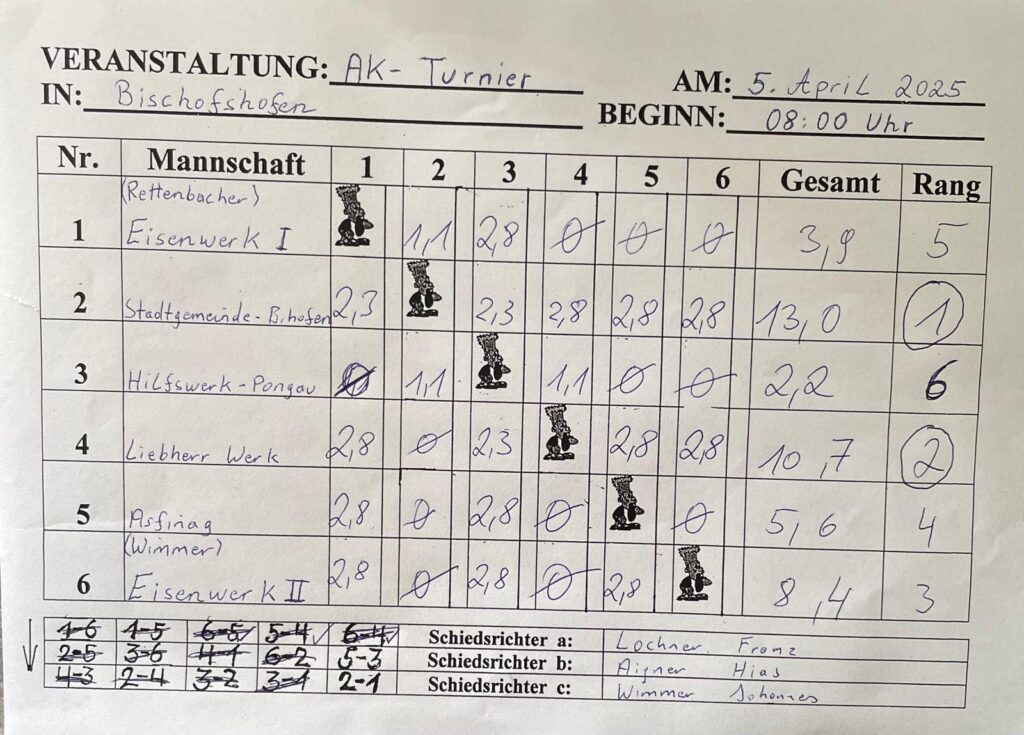 VERANSTALTUNG: AK- Turnier AM: 5. April 2025
IN: Bischofshofen BEGINN: 08:00 Uhr
Nr. Mannschaft 1 2 3 4 5 6 Gesamt Rang
1 (Rettenbacher) Eisenwerk I 1,1 2,8 0 0 0 3,9 5
2 Stadtgemeinde-B.hofen 2,3 2,3 2,8 2,8 2,8 13,0 1
3 Hilfswerk-Pongau 0 1,1 1,1 0 0 2,2 6
4 Liebherr Werk 2,8 0 2,3 2,8 2,8 10,7 2
5 Asfinag 2,8 0 2,8 0 0 5,6 4
6 (Wimmer) Eisenwerk II 2,8 0 2,8 0 2,8 8,4 3
1-6 1-5 6-5 5-4 6-4 Schiedsrichter a: Lochner Franz
2-5 3-6 4-1 6-2 5-3 Schiedsrichter b: Aigner Hias
4-3 2-4 3-2 3-1 2-1 Schiedsrichter c: Wimmer Johannes